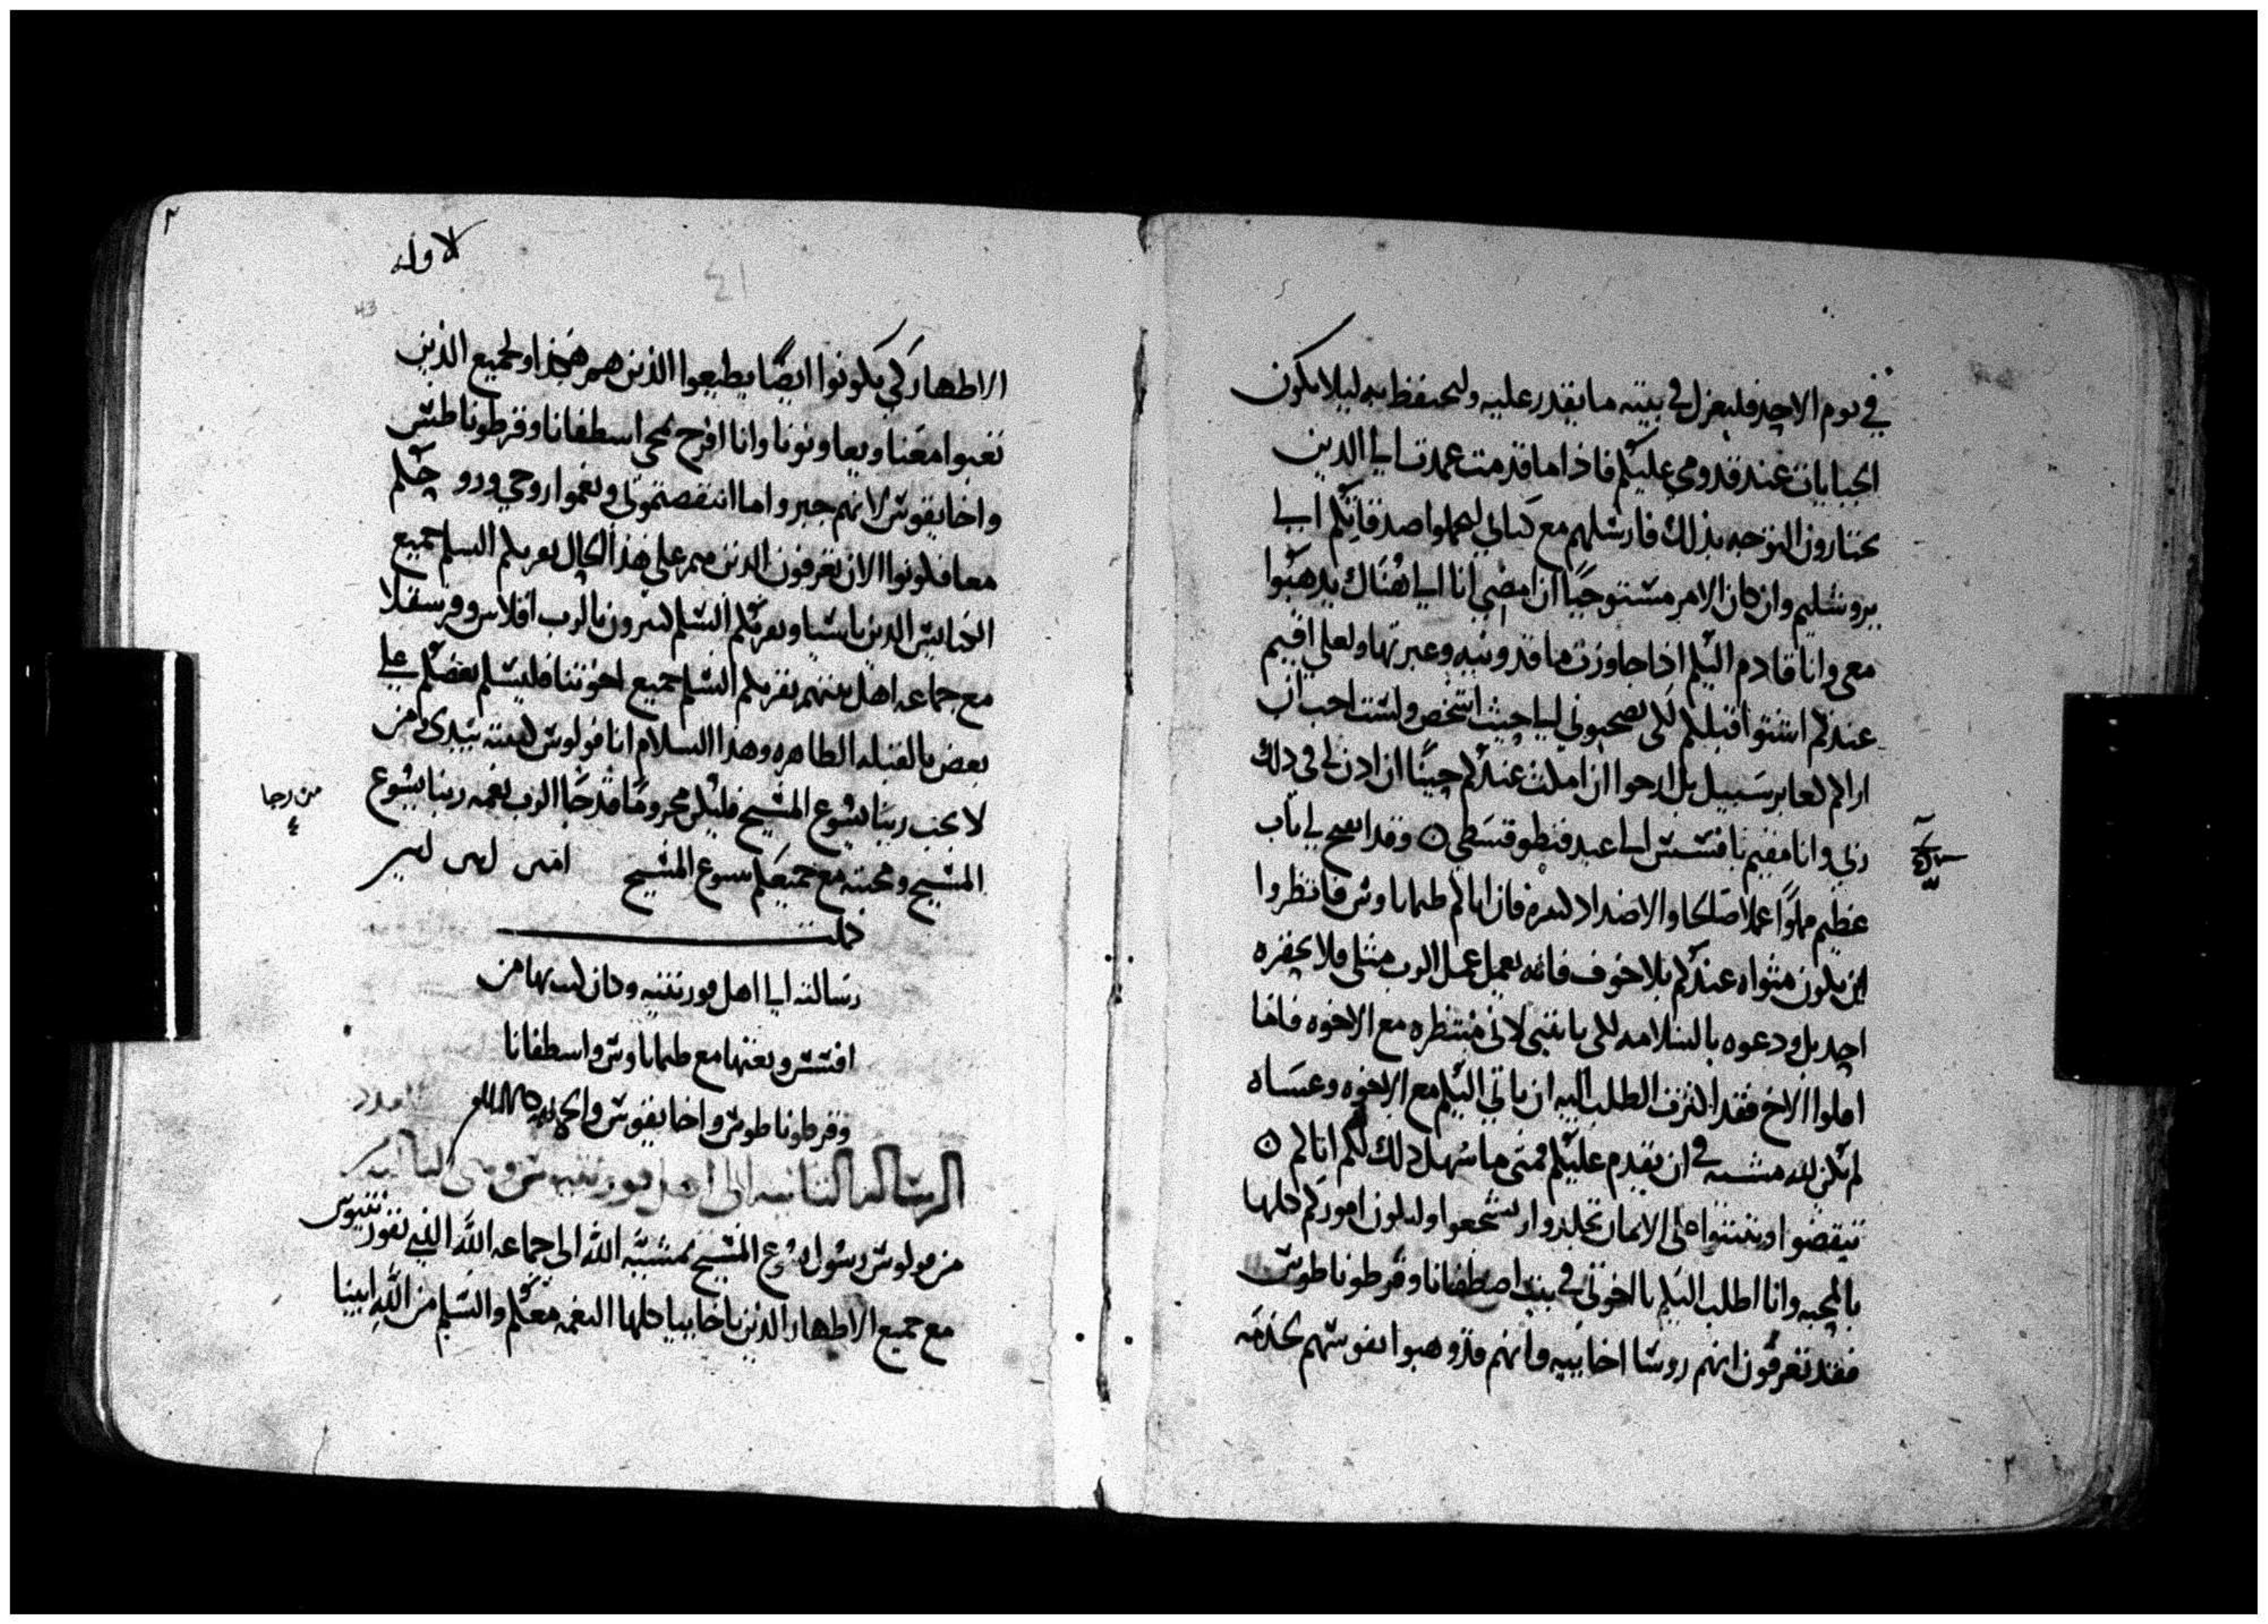 في يوم الاحد فليعزل في بيته ما يقدر عليه وليحتفظ به ليلا يكون
الجبايات عند قدومي عليكم فاذا ما قدمت عمدت الي الدين
تختارون التوجه بذلك فارسلهم مع كتابي ليحملوا صدقاتكم الي
يروشليم وان كان الامر مستوجبًا ان امضي انا الي هناك يدهبوا
معي وانا قادم اليكم اذا جاوزت ماقدونيه وعبرتها ولعلي اقيم
عندكم اشتوا قبلكم لكي تصحبوني الي حيث اشخص ولست احب ان
اراكم كعابر سبيل بل ارجوا ان امكث عندكم حينًا ان ادن لي في دلك
ربي وانا مقيم بافسس الي عيد فنطوقسطي ه وقد انفتح لي باب
عظيم مملوًا عملا صالحا والاضداد كثيره فان اتاكم طيماتاوس فانظروا
اين يكون مثواه عندكم بلا خوف فانه يعمل عمل الرب مثلي فلا يحقره
احد بل ودعوه بالسلامه لكي ياتيني لاني منتظره مع الاخوه فاما
افلوا الاخ فقد اكثرت الطلب اليه ان ياتي اليكم مع الاخوه وعساه
لم تكن لله مشيه في ان يقدم عليكم فمتى ما سهل دلك لكم اتاكم ه
تيقضوا وتثبتوا على الايمان تجلدوا وتشجعوا ولتكون اموركم كلها
بالمحبه وانا اطلب اليكم يا اخوتي في بيت اصطفانا وفرطوناطوس
فقد تعرفون انهم روسا اخاييه وانهم قد وهبوا نفوسهم لخدمه
لاوله
43
الاطهار كي يكونوا ايضًا يطيعوا الذين هم هكذا ولجميع الذين
تعبوا معنا ويعاونونا وانا افرح بمجي اسطفانا وفرطوناطس
واخايقوس لانهم جبروا ما انتقصتموني ونعموا روحي وروحكم
معا فكونوا الان تعرفون الدين هم على هذا الحال يقريكم السلم جميع
الكنايس الدين باسيا ويقريكم السلم كثيرون بالرب اقلاس وفرسقلا
مع جماعه اهل بيتهم يقريكم السلم جميع اخوتنا فليسلم بعضكم علي
بعض بالقبله الطاهره وهذا السلام انا فولوس كتبته بيدي من
لا يحب ربنا يسوع المسيح فليكن محرومًا قد جا الرب نعمه ربنا يسوع
من رجا
المسيح ومحبته مع جميعكم بيسوع المسيح امين امين امين
كملت
رسالته الي اهل قورنتيه وكان كتبها من
افسس وبعثها مع طيماتاوس واسطفانا
وفرطوناطوس واخايقوس
الرسالة الثانيه الى اهل قورنتيه
من فولوس رسول يسوع المسيح بمشيه الله الى جماعه الله التي بقورنتيوس
مع جميع الاطهار الذين باخاييا كلها النعمه معكم والسلم من الله ابينا